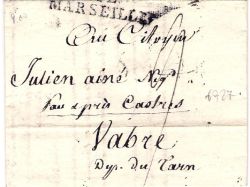 MARSEILLE
Au Citoyen
Julien ainé Nég.t
près Castres
Vabre
Dep. du Tarn